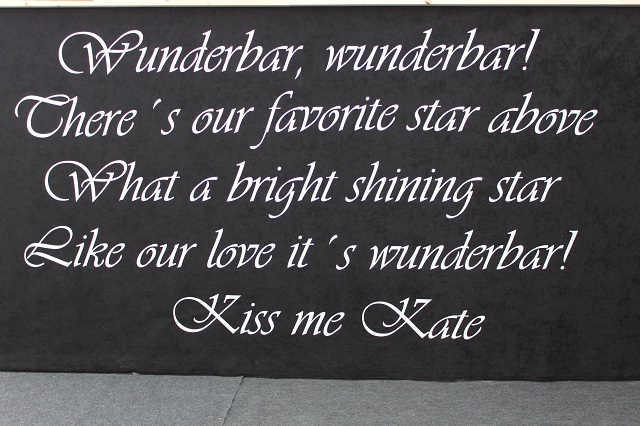 Wunderbar, wunderbar!
There´s our favorite star above
What a bright shining star
Like our love it´s wunderbar!
Kiss me Kate